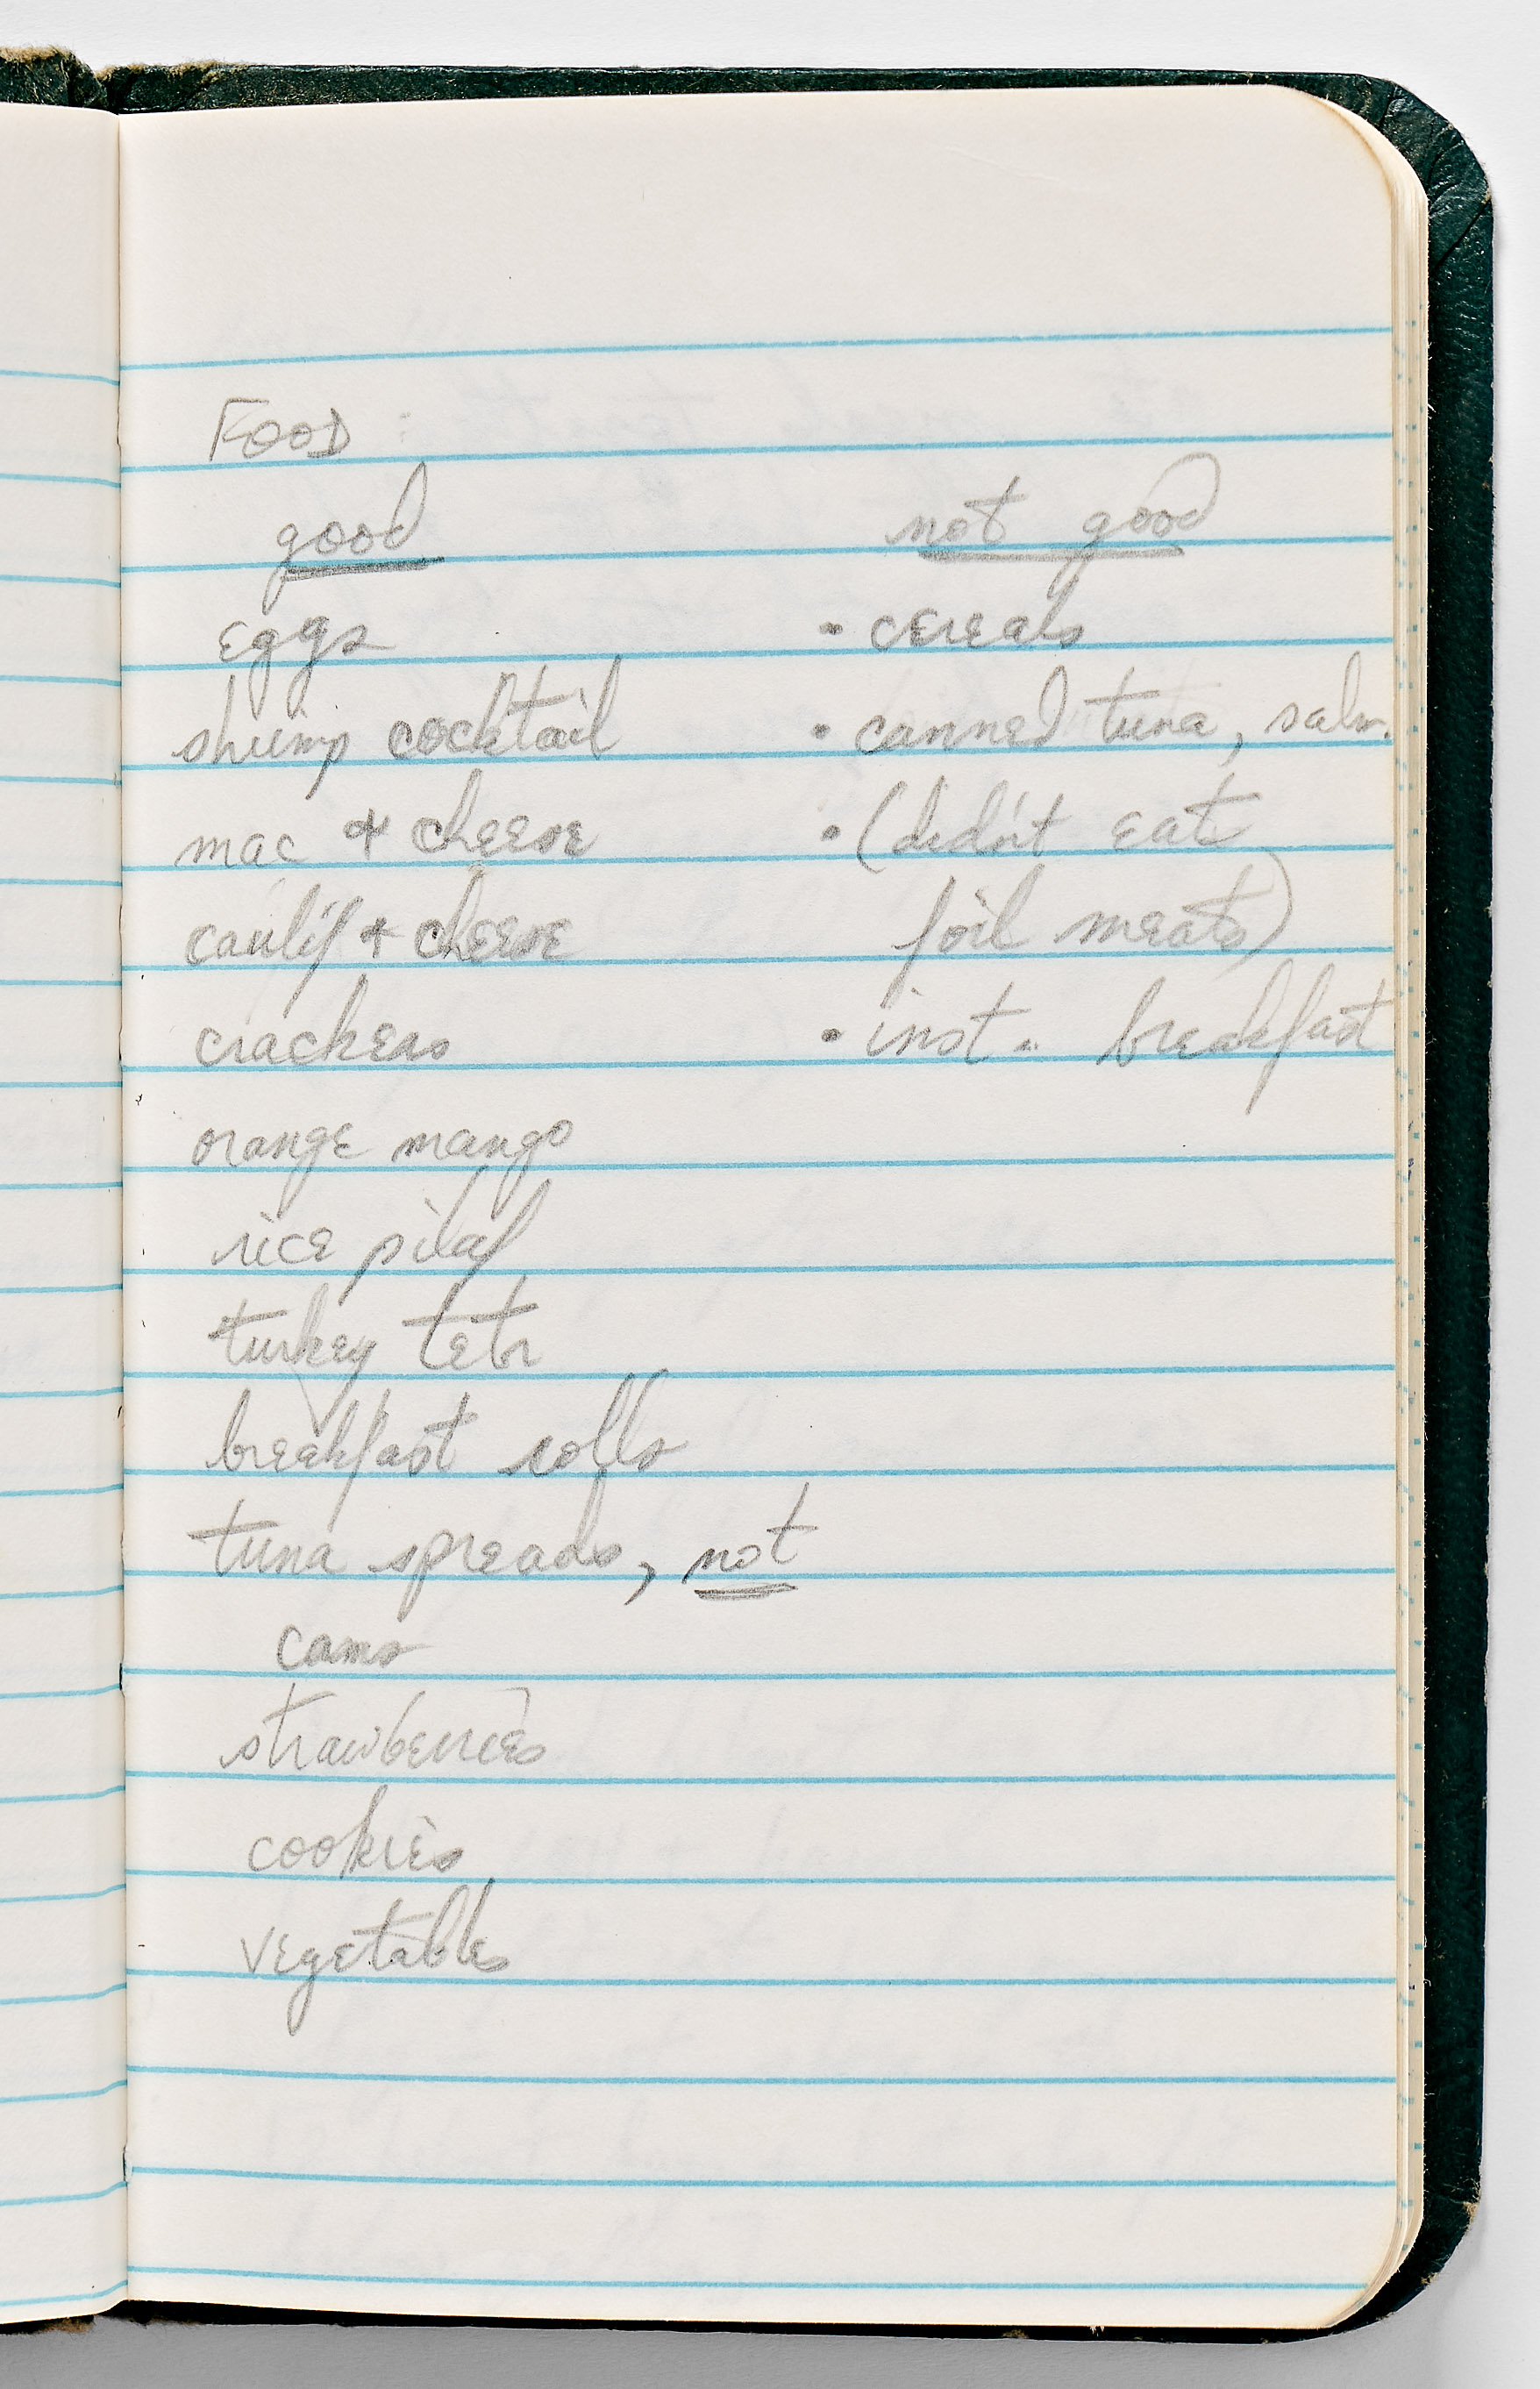 FOOD
good not good
eggs • cereals
shrimp cocktail • canned tuna, salm.
mac & cheese • (didn't eat
caulif + cheese foil meats)
crackers • inst. breakfast
orange mango
rice pilaf
turkey tetr
breakfast rolls
tuna spreads, not
cans
strawberries
cookies
vegetables